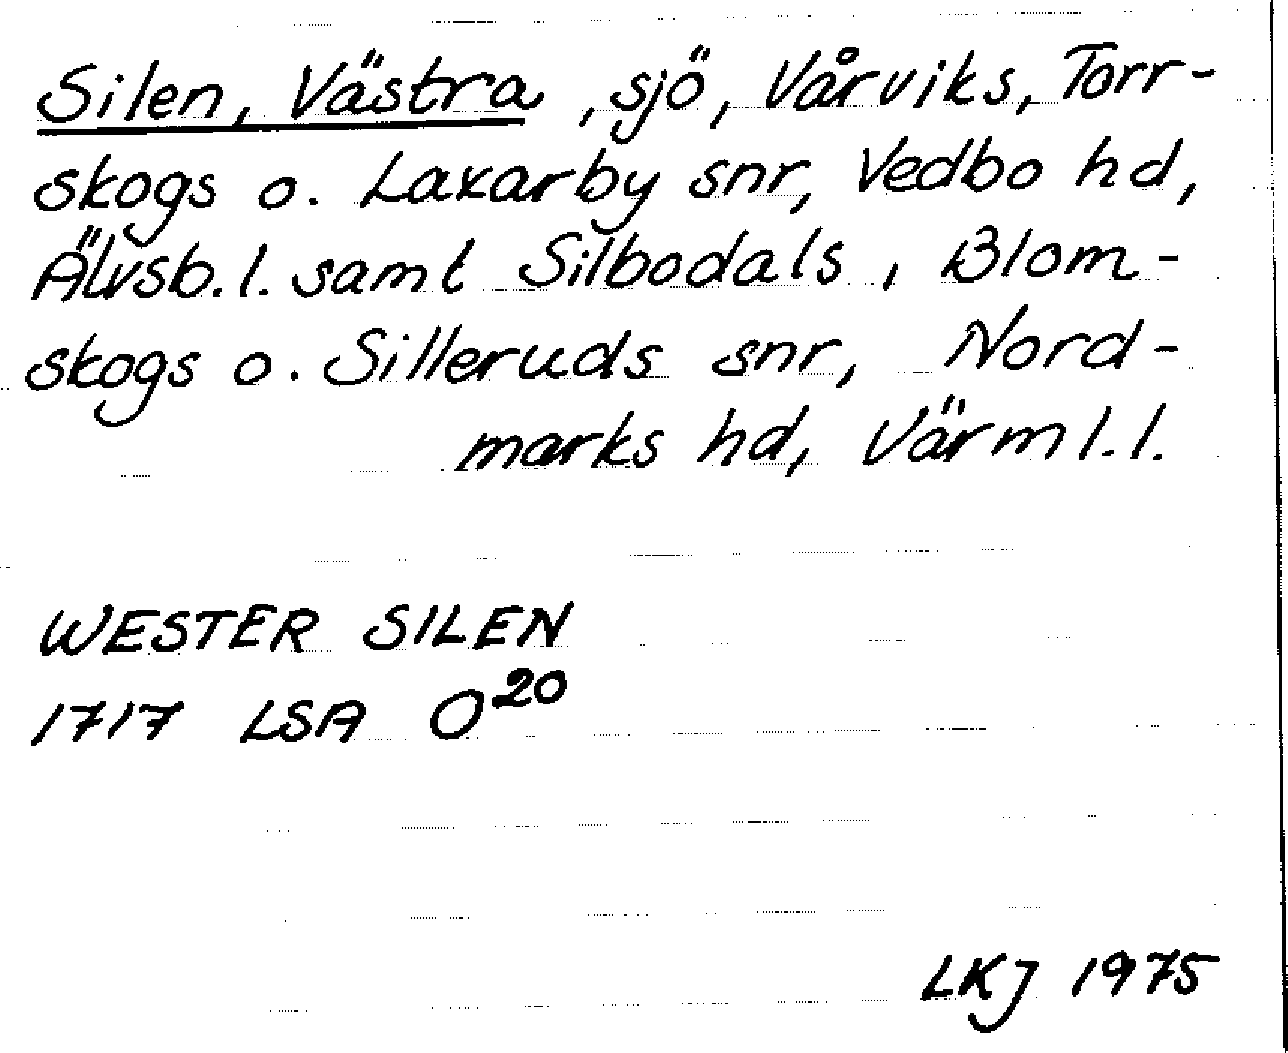 Silen, Västra, sjö, Vårviks, Torr-
skogs o. Laxarby snr, Vedbo hd,
Älvsb. l. samt Silbodals, Blom-
skogs o. Silleruds snr, Nord-
marks hd, Värml. l.
WESTER SILEN
1717 LSA O²⁰
LKJ 1975